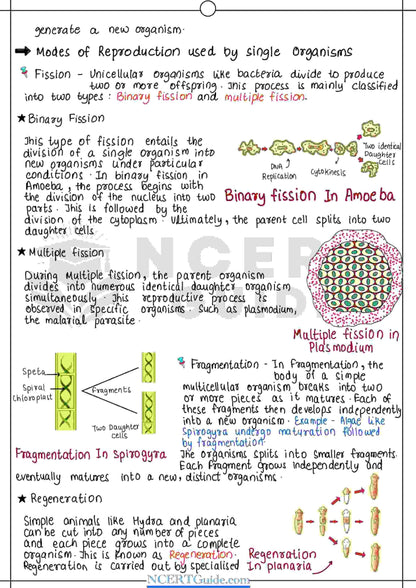 generate a new organism.
➡ Modes of Reproduction used by single Organisms
Fission - Unicellular organisms like bacteria divide to produce
two or more offspring. This process is mainly classified
into two types : Binary fission and multiple fission.
★ Binary Fission
This type of fission entails the
division of a single organism into
new organisms under particular
conditions. In binary fission in
Amoeba, the process begins with
the division of the nucleus into two
parts. This is followed by the
division of the cytoplasm. Ultimately, the parent cell splits into two
daughter cells.
DNA
Replication
Cytokinesis
Two identical
Daughter
Cells
Binary fission In Amoeba
★ Multiple fission
During Multiple fission, the parent organism
divides into numerous identical daughter organism
simultaneously. This reproductive process is
observed in specific organisms such as plasmodium,
the malarial parasite.
Multiple fission in
Plasmodium
Speta
Spiral
Chloroplast
Fragments
Two Daughter
cells
Fragmentation In Spirogyra
Fragmentation - In Fragmentation, the
body of a simple
multicellular organism breaks into two
or more pieces as it matures. Each of
these fragments then develops independently
into a new organism. Example - Algae like
Spirogyra undergo maturation followed
by fragmentation.
The organisms splits into smaller fragments.
Each fragment grows independently and
eventually matures into a new, distinct organisms.
★ Regeneration
Simple animals like Hydra and planaria
can be cut into any number of pieces
and each piece grows into a complete
organism. This is known as Regeneration.
Regeneration is carried out by specialised
Regenration
In planaria
NCERT
GUIDE.COM
NCERTGuide.com